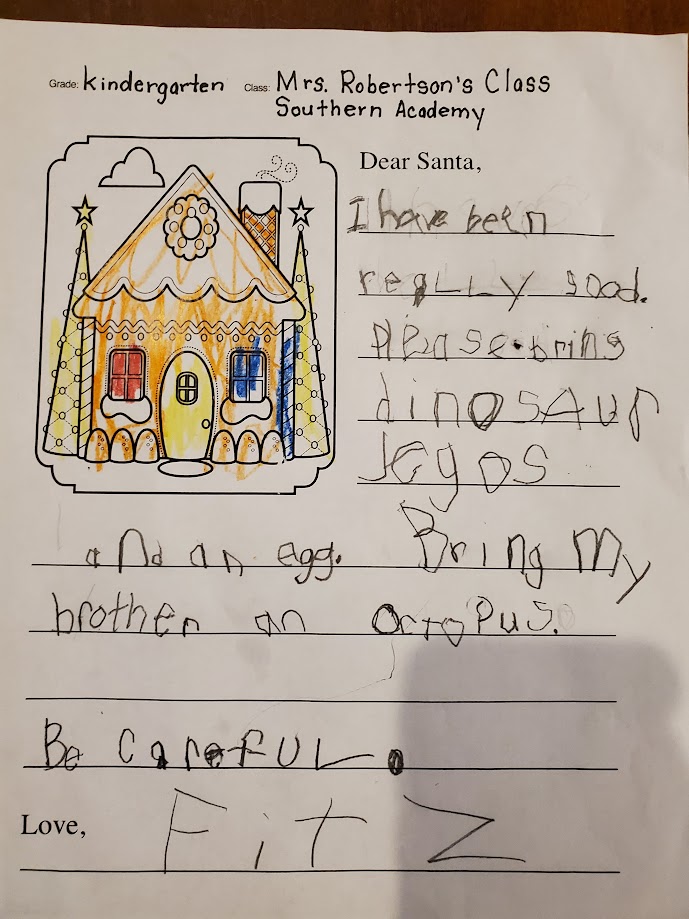 Grade: Kindergarten Class: Mrs. Robertson's Class
Southern Academy
Dear Santa,
I have been
really good.
Please bring
dinosaur
legos
and an egg. Bring my
brother an octopus.
Be careful.
Love, Fitz